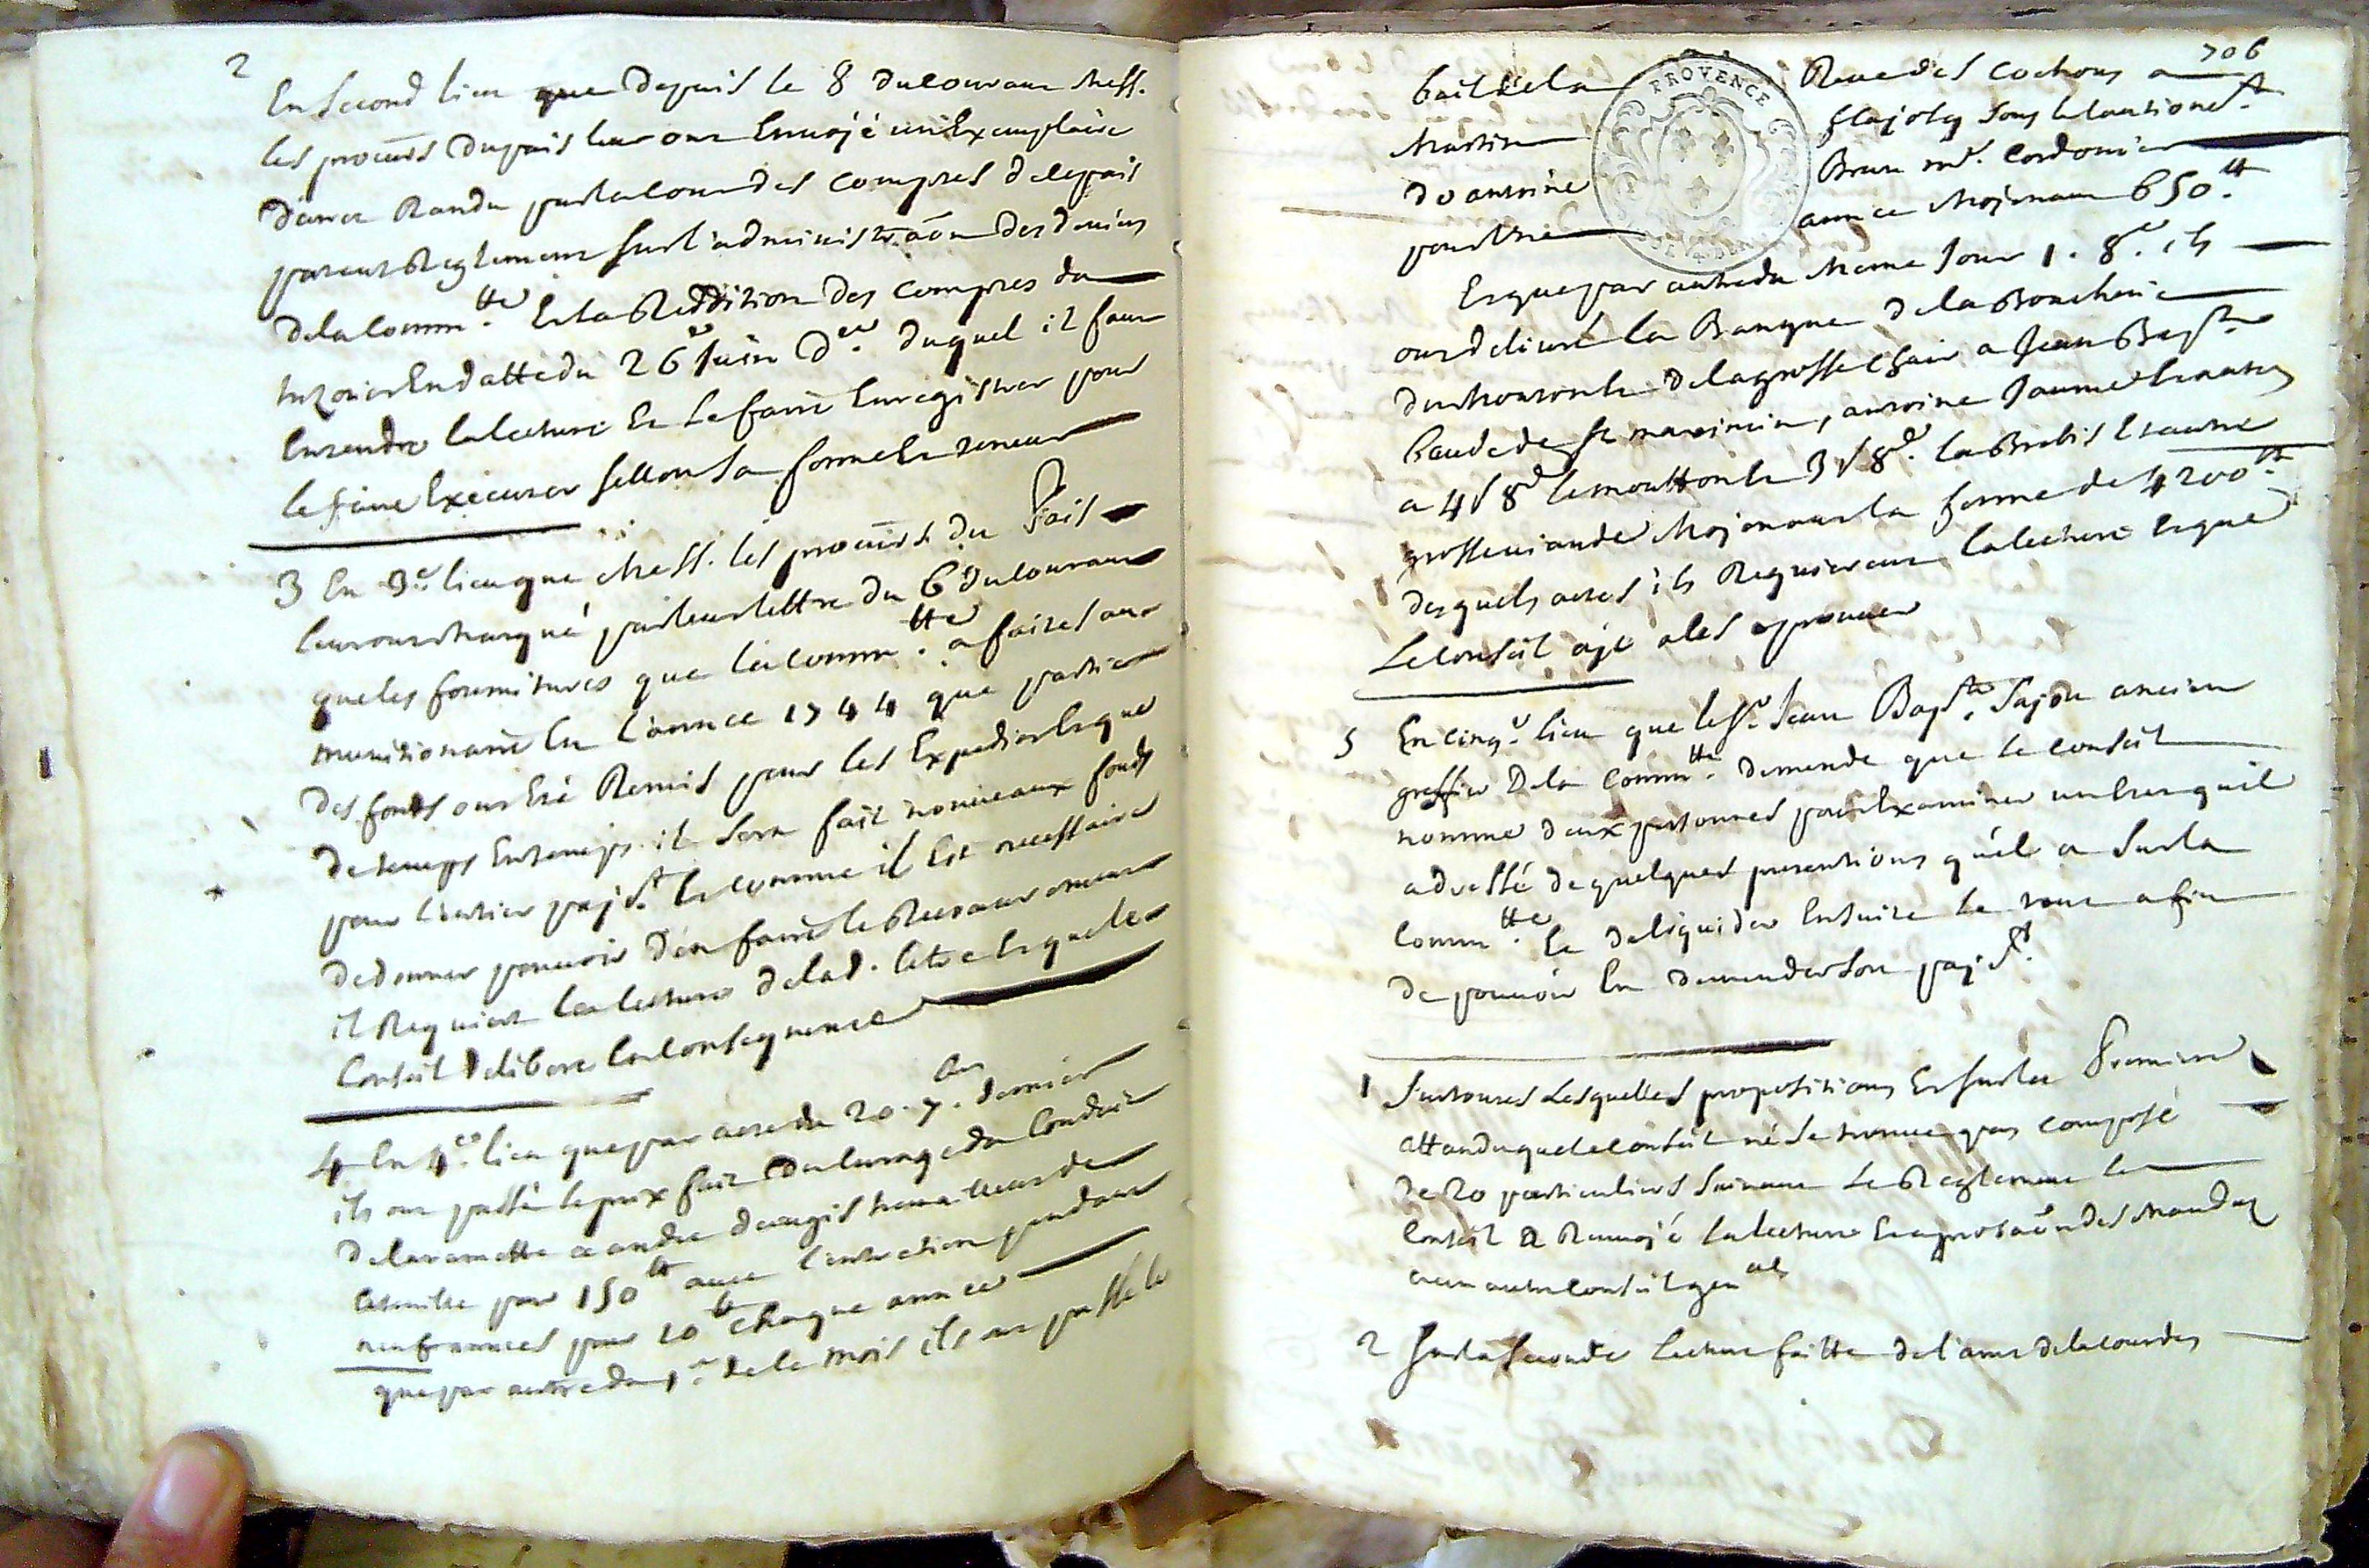 2
En second lieu que depuis le 8 du courant Mess.
les procurs du pais leur ont Envoyé un Exemplaire
d'arret Randu par la cour des comptes de ce pais
portant Reglement sur l'administraôn des deniers
de la Commtté Et la Reddition des comptes du
trezorier En datte du 26e Juin Der duquel il faut
Entendre la lecture Et Le faire Enregistrer pour
le faire Executer sellon sa forme Et teneur
3 En 3e lieu que Mess. les procurs du Pais
leur ont marqué par leur lettre du 6 du courant
que les fournitures que la Commtté a faites au
munitionaire En l'année 1744 que partie
des fonds ont Eté Remis pour les Expedier Et que
de temps En temps il sera fait nouveaux fonds
pour l'entier payemt Et comme il Est necessaire
de donner pouvoir d'en faire le
il Requiert la lecture de lad. letre Et que le
Conseil delibere En consequence
4 En 4e lieu que par acte du 20. 7bre dernier
ils ont passé le prix fait du curage du Conduit
de la ramette a andré travailleur de
cette ville pour 150 tt avec l'entretien pendant
neuf années pour 20 tt chaque année
que par autre du 1er de ce mois ils ont passé le
706
bail de la Reve des Cochons a
Martin flajoly sous le cautionemt
d'antoine Brun md. Cordonier
pour Une année Moyenant 650 tt
PROVENCE
Et que par autre du Meme Jour 1. 8e. ils
ont delivré la Banque de la Boucherie
du Mouton Et de la grosse Chair a Jean Bapte
baude de st maximin, antoine Jaume Et autres
a 4 s 8 d le moutton Et 3 s 8 d. la Brebis Et autre
grosse viande Moyenant la ferme de 4200 tt
desquels actes ils Requierent la lecture Et que
Le conseil aye a les approuver
5 En cinqe lieu que le sr Jean Bapte. Sajou ancien
greffier De la Commtté demande que le conseil
nomme deux personnes pour Examiner un Etat qu'il
a dressé de quelques pretentions qu'il a sur la
Commtté. Et de liquider Ensuite le tout afin
de pouvoir En demander son payemt.
1 Sur toutes Lesquelles propositions Et sur la Premiere
attandu que le conseil né se trouve pas composé
de 20 particuliers suivant Le Reglement le
Conseil a Renvoyé la lecture Et aprobaôn des Mandats
a un autre conseil genal
2 Sur la seconde Lecture faitte de l'arret de la cour des